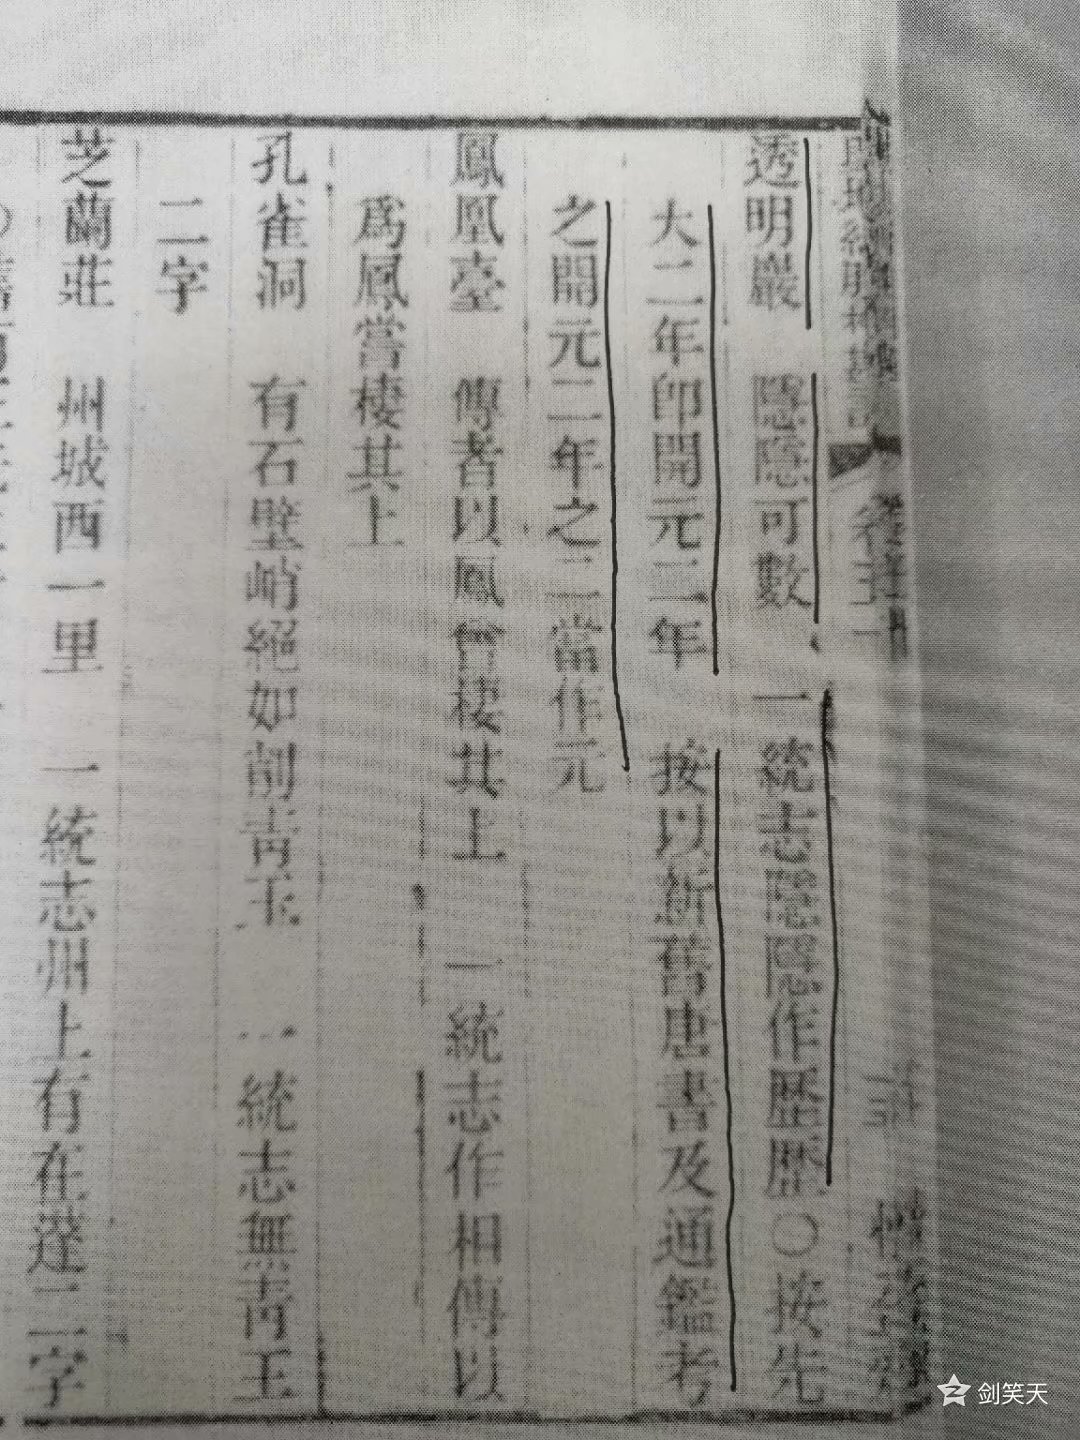 透明巖 隱隱可數 一統志隱隱作歷歷○按先
大二年卽開元二年 按以新舊唐書及通鑑考
之開元二年之二當作元
鳳凰臺 傳者以鳳曾棲其上 一統志作相傳以
爲鳳嘗棲其上
孔雀洞 有石壁峭絕如削靑玉 一統志無靑玉
二字
芝蘭莊 州城西一里 一統志州上有在達二字
剑笑天